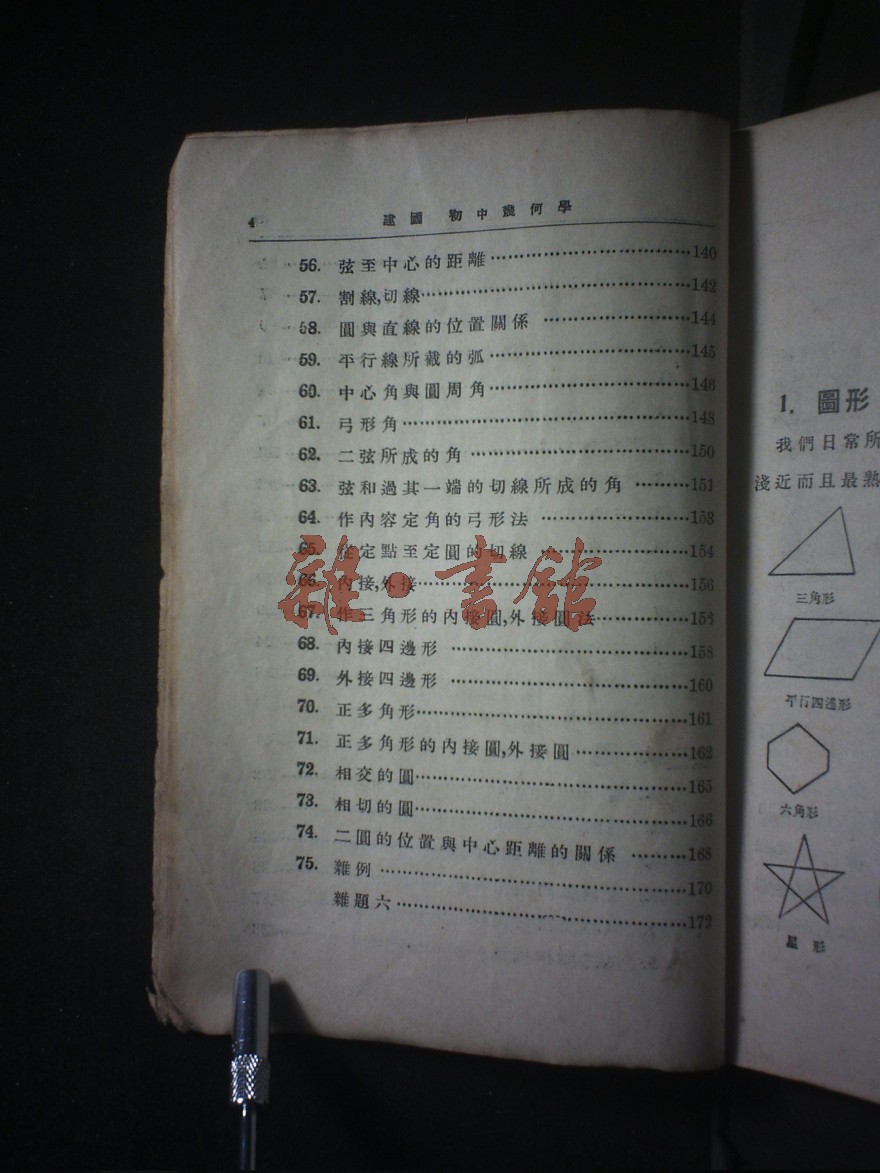 4 建國 初中幾何學
56. 弦至中心的距離……140
57. 割線,切線……142
58. 圓與直線的位置關係……144
59. 平行線所截的弧……145
60. 中心角與圓周角……146
61. 弓形角……148
62. 二弦所成的角……150
63. 弦和過其一端的切線所成的角……151
64. 作內容定角的弓形法……153
65. 從定點至定圓的切線……154
66. 內接,外接……156
67. 作三角形的內接圓,外接圓法……156
68. 內接四邊形……158
69. 外接四邊形……160
70. 正多角形……161
71. 正多角形的內接圓,外接圓……162
72. 相交的圓……165
73. 相切的圓……166
74. 二圓的位置與中心距離的關係……168
75. 雜例……170
雜題六……173
雜·書館
1. 圖形
我們日常所
淺近而且最熟
三角形
平行四邊形
六角形
星形